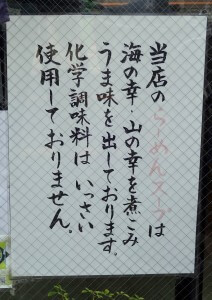 当店のらーめんスープは
海の幸・山の幸を煮こみ
うま味を出しております。
化学調味料は いっさい
使用しておりません。